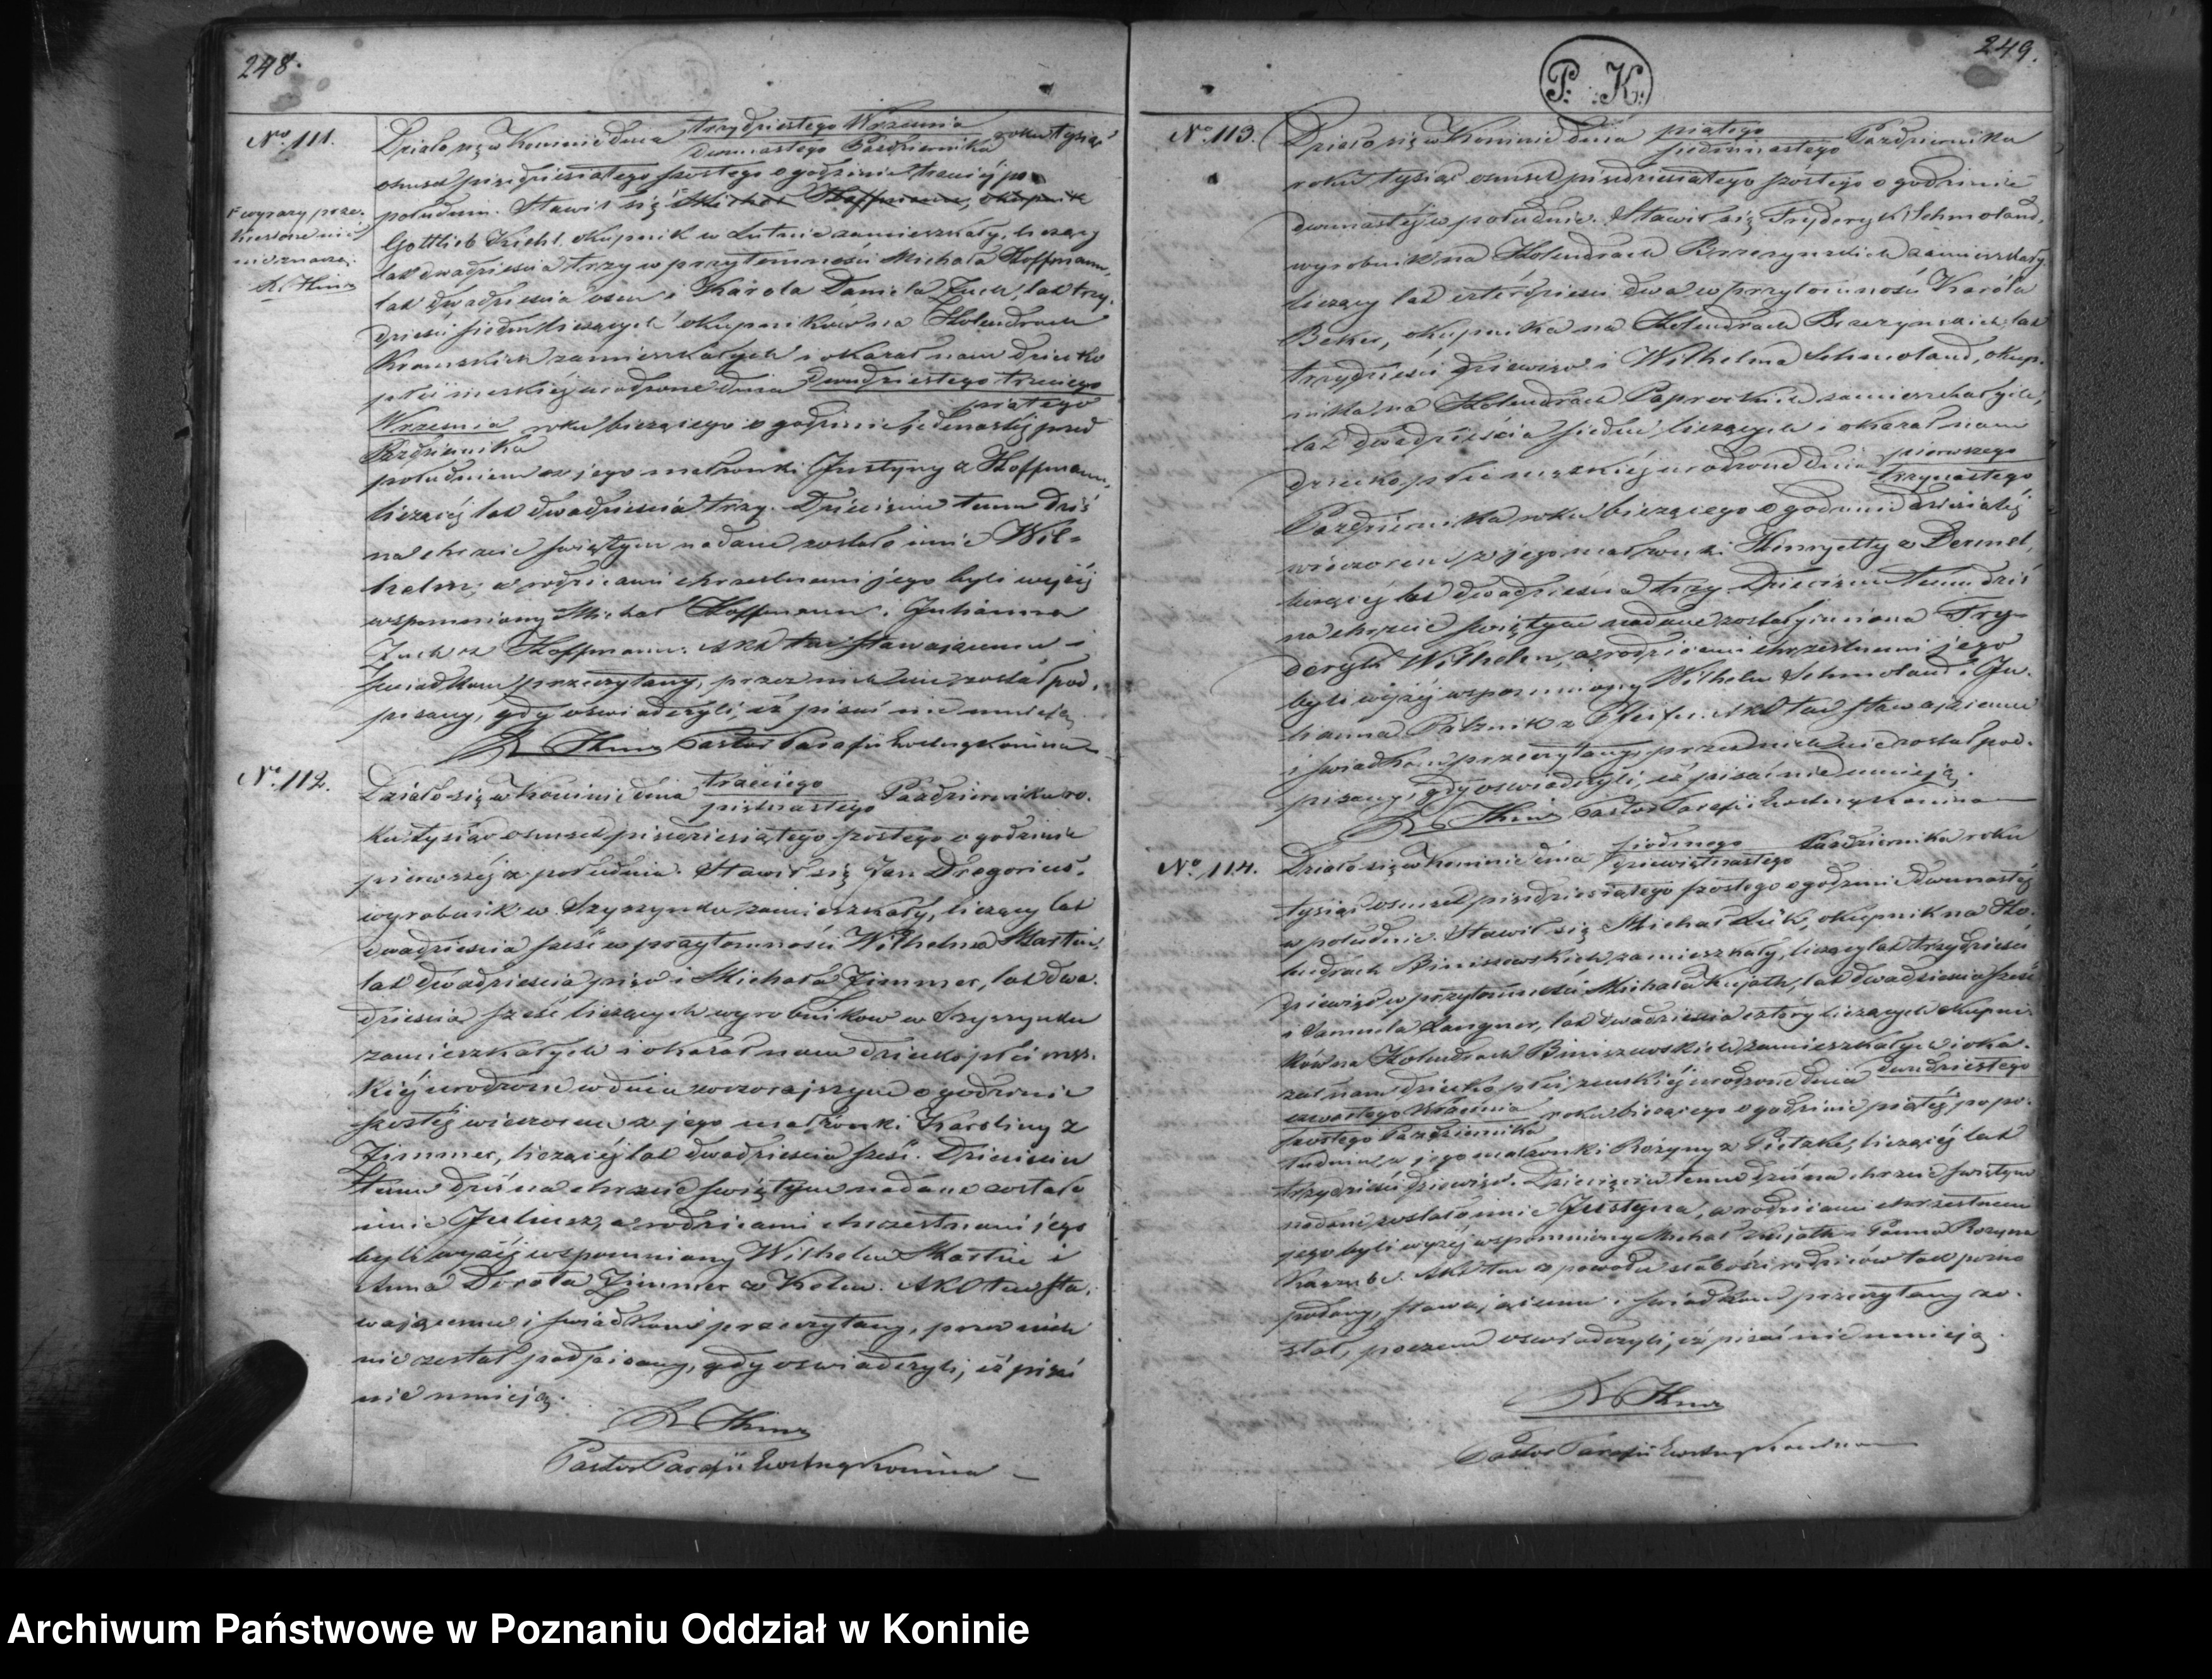 248.
No. 111.
Działo się w Koninie dnia trzydziestego Września roku tysiąc
dwunastego Października
ośmset pięćdziesiątego szostego o godzinie trzeciéj po
południu. Stawił się Michał Hoffmann, okupnik
Gottlieb Kiehl, okupnik w zamieszkały, liczący
lat dwadzieścia trzy w przytomności Michała Hoffmann,
lat dwadzieścia osm i Karola Daniela Zuch, lat trzy-
dzieści siedm liczących okupników na Holendrach
Kramskich zamieszkałych i okazał nam dziecko
płci męskiéj urodzone dnia dwudziestego trzeciego
piątego
Września roku bieżącego o godzinie jedenastéj przed
Października
południem z jego małżonki Justyny z Hoffmann,
liczącéj lat dwadzieścia trzy. Dziecięciu temu dziś
na chrzcie świętym nadane zostało imie Wil-
helm, a rodzicami chrzestnemi jego byli wyżéj
wspomniony Michał Hoffmann i Julianna
Zuch z Hoffmann. Akt ten stawającemu i
świadkom przeczytany, przez nich nie został pod-
pisany, gdy oswiadczyli, iż pisać nie umieją
Pastor Parafii Ewang Konina
wyrazy prze-
kreslone nic
nie znaczą.
No. 112.
Działo się w Koninie dnia trzeciego Października ro-
piętnastego
ku tysiąc ośmset pięćdziesiątego szostego o godzinie
pierwszéj z południa. Stawił się Jan Dregorius,
wyrobnik w Szyszynku zamieszkały, liczący lat
dwadzieścia sześć w przytomności Wilhelma Martin,
lat dwadzieścia pięć i Michała Zimmer, lat dwa-
dzieścia sześć liczących wyrobników w Szyszynku
zamieszkałych i okazał nam dziecko płci męz-
kiéj urodzone w dniu wczorajszym o godzinie
szostéj wieczorem z jego małżonki Karoliny z
Zimmer, liczącéj lat dwadzieścia sześć. Dziecięciu
temu dziś na chrzcie świętym nadane zostało
imie Juliusz, a rodzicami chrzestnemi jego
byli wyżéj wspomniony Wilhelm Martin i
Anna Dorota Zimmer z Kelm. Akt ten sta-
wającemu i świadkom przeczytany, przez nich
nie został podpisany, gdy oswiadczyli, iż pisać
nie umieją.
Pastor Parafii Ewang Konina
249.
P. K.
No. 113.
Działo się w Koninie dnia piątego Października
siedmnastego
roku tysiąc ośmset pięćdziesiątego szostego o godzinie
dwunastéj w południe. Stawił się Fryderyk Schmoland,
wyrobnik na Holendrach Brzezynskich zamieszkały,
liczący lat czterdzieści dwa w przytomności Karola
Beker, okupnika na Holendrach Brzezynskich, lat
trzydzieści dziewięć i Wilhelma Schmoland, okup-
nika na Holendrach Paprockich zamieszkałych,
lat dwadzieścia siedm liczących i okazał nam
dziecko płci męzkiéj urodzone dnia pierwszego
trzynastego
Października roku bieżącego o godzinie dziesiątéj
wieczorem z jego małżonki Henryetty z
liczącéj lat dwadzieścia trzy. Dziecięciu temu dziś
na chrzcie świętym nadane zostały imiona Fry-
deryk Wilhelm, a rodzicami chrzestnemi jego
byli wyżéj wspomniony Wilhelm Schmoland i Ju-
lianna z Pfeifer. Akt ten stawającemu
i świadkom przeczytany, przez nich nie został pod-
pisany, gdy oswiadczyli, iż pisać nie umieją.
Pastor Parafii Ewang Konina
No. 114.
Działo się w Koninie dnia siodmego Października roku
dziewiętnastego
tysiąc ośmset pięćdziesiątego szostego o godzinie dwunastéj
w południe. Stawił się Michał okupnik na Ho-
lendrach Biniszewskich zamieszkały, liczący lat trzydzieści
dziewięć w przytomności Michała Kujath, lat dwadzieścia sześć
i Samuela Langner, lat dwadzieścia cztery liczących okupni-
ków na Holendrach Biniszewskich zamieszkałych i oka-
zał nam dziecko płci żenskiéj urodzone dnia dwudziestego
czwartego Września roku bieżącego o godzinie piątéj po po-
szostego Października
łudniu z jego małżonki Rozyny z Pietzke, liczącéj lat
trzydzieści dziewięć. Dziecięciu temu dziś na chrzcie świętym
nadane zostało imie Justyna, a rodzicami chrzestnemi
jego byli wyżéj wspomniony Michał Kujath i Panna Rozyna
Akt ten z powodu słabości rodziców tak pozno
podany, stawającemu i świadkom przeczytany zo-
stał, poczem oswiadczyli, iż pisać nie umieją.
Pastor Parafii Ewang Konina
Archiwum Państwowe w Poznaniu Oddział w Koninie